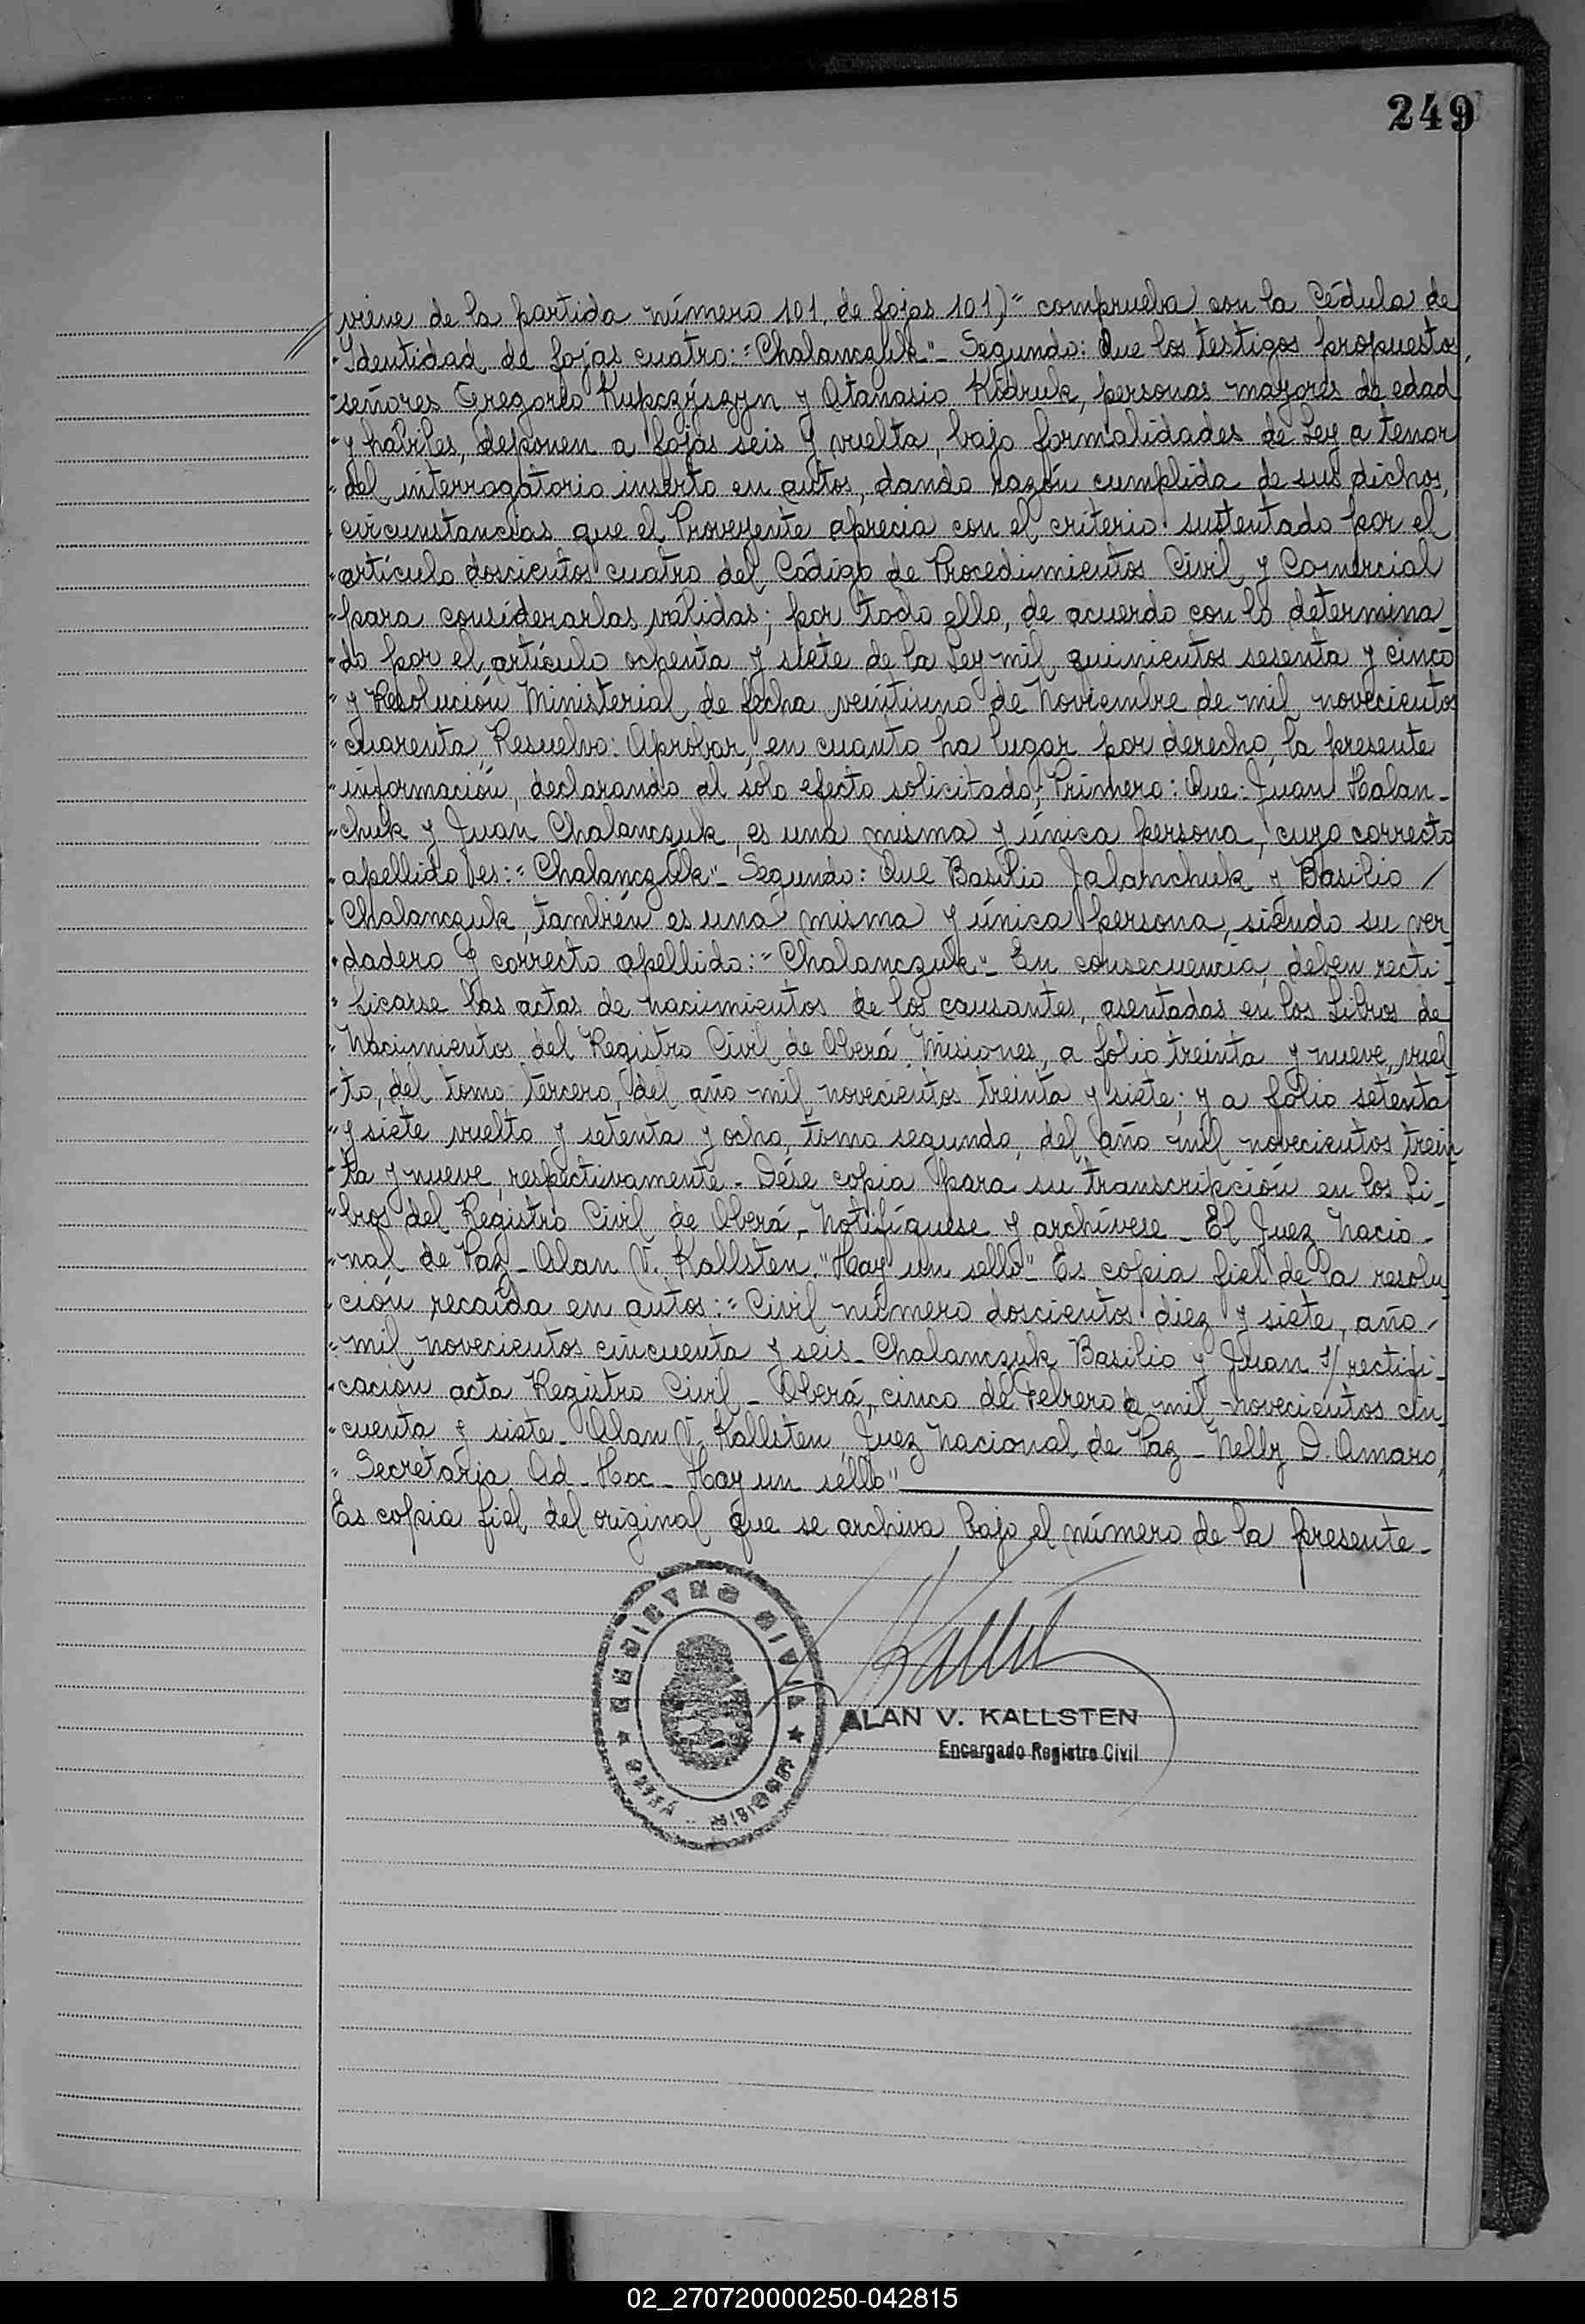 249
viene de la partida número 101, de fojas 101)" comprueba con la Cédula de
"Identidad de fojas cuatro: "Chalanczuk"- Segundo: Que los testigos propuestos,
"señores Gregorio Kupczyszyn y Atanasio Kidruk, personas mayores de edad
"y hábiles, deponen a fojas seis y vuelta, bajo formalidades de Ley a tenor
"del interrogatorio inserto en autos, dando razón cumplida de sus dichos,
"circunstancias que el Proveyente aprecia con el criterio sustentado por el
"artículo doscientos cuatro del Código de Procedimientos Civil y Comercial
"para considerarlas válidas; por todo ello, de acuerdo con lo determina_
"do por el artículo ochenta y siete de la Ley mil quinientos sesenta y cinco
"y Resolución Ministerial de fecha veintiuno de Noviembre de mil novecientos
"cuarenta, Resuelvo: Aprobar, en cuanto ha lugar por derecho, la presente
"información, declarando al sólo efecto solicitado; Primero: Que: Juan Halan-
"chuk y Juan Chalanczuk, es una misma y única persona, cuyo correcto
"apellido es: "Chalanczuk"- Segundo: Que Basilio Jalanchuk y Basilio /
"Chalanczuk, también es una misma y única persona, siendo su ver_
"dadero y correcto apellido: "Chalanczuk"- En consecuencia, deben recti-
"ficarse las actas de nacimientos de los causantes, asentadas en los Libros de
"Nacimientos del Registro Civil de Oberá, Misiones, a folio treinta y nueve, vuel
"to, del tomo tercero, del año mil novecientos treinta y siete; y a folio setenta
"y siete vuelto y setenta y ocho, tomo segundo, del año mil novecientos trein
"ta y nueve, respectivamente- Dése copia para su transcripción en los Li_
"bros del Registro Civil de Oberá,- Notifíquese y archívese- El Juez Nacio-
"nal de Paz- Alan V. Kallsten. "Hay un sello"- Es copia fiel de la resolu
"ción recaída en autos: "Civil número doscientos diez y siete, año /
"mil novecientos cincuenta y seis- Chalanczuk Basilio y Juan s/ rectifi-
"cación acta Registro Civil- Oberá, cinco de Febrero de mil novecientos cin_
"cuenta y siete- Alan V. Kallsten, Juez Nacional de Paz- Nelly D. Amaro,
"Secretaria Ad-Hoc- Hay un sello"
Es copia fiel del original que se archiva bajo el número de la presente-
REGISTRO CIVIL
OBERÁ - MISIONES
ALAN V. KALLSTEN
Encargado Registro Civil
02_270720000250-042815